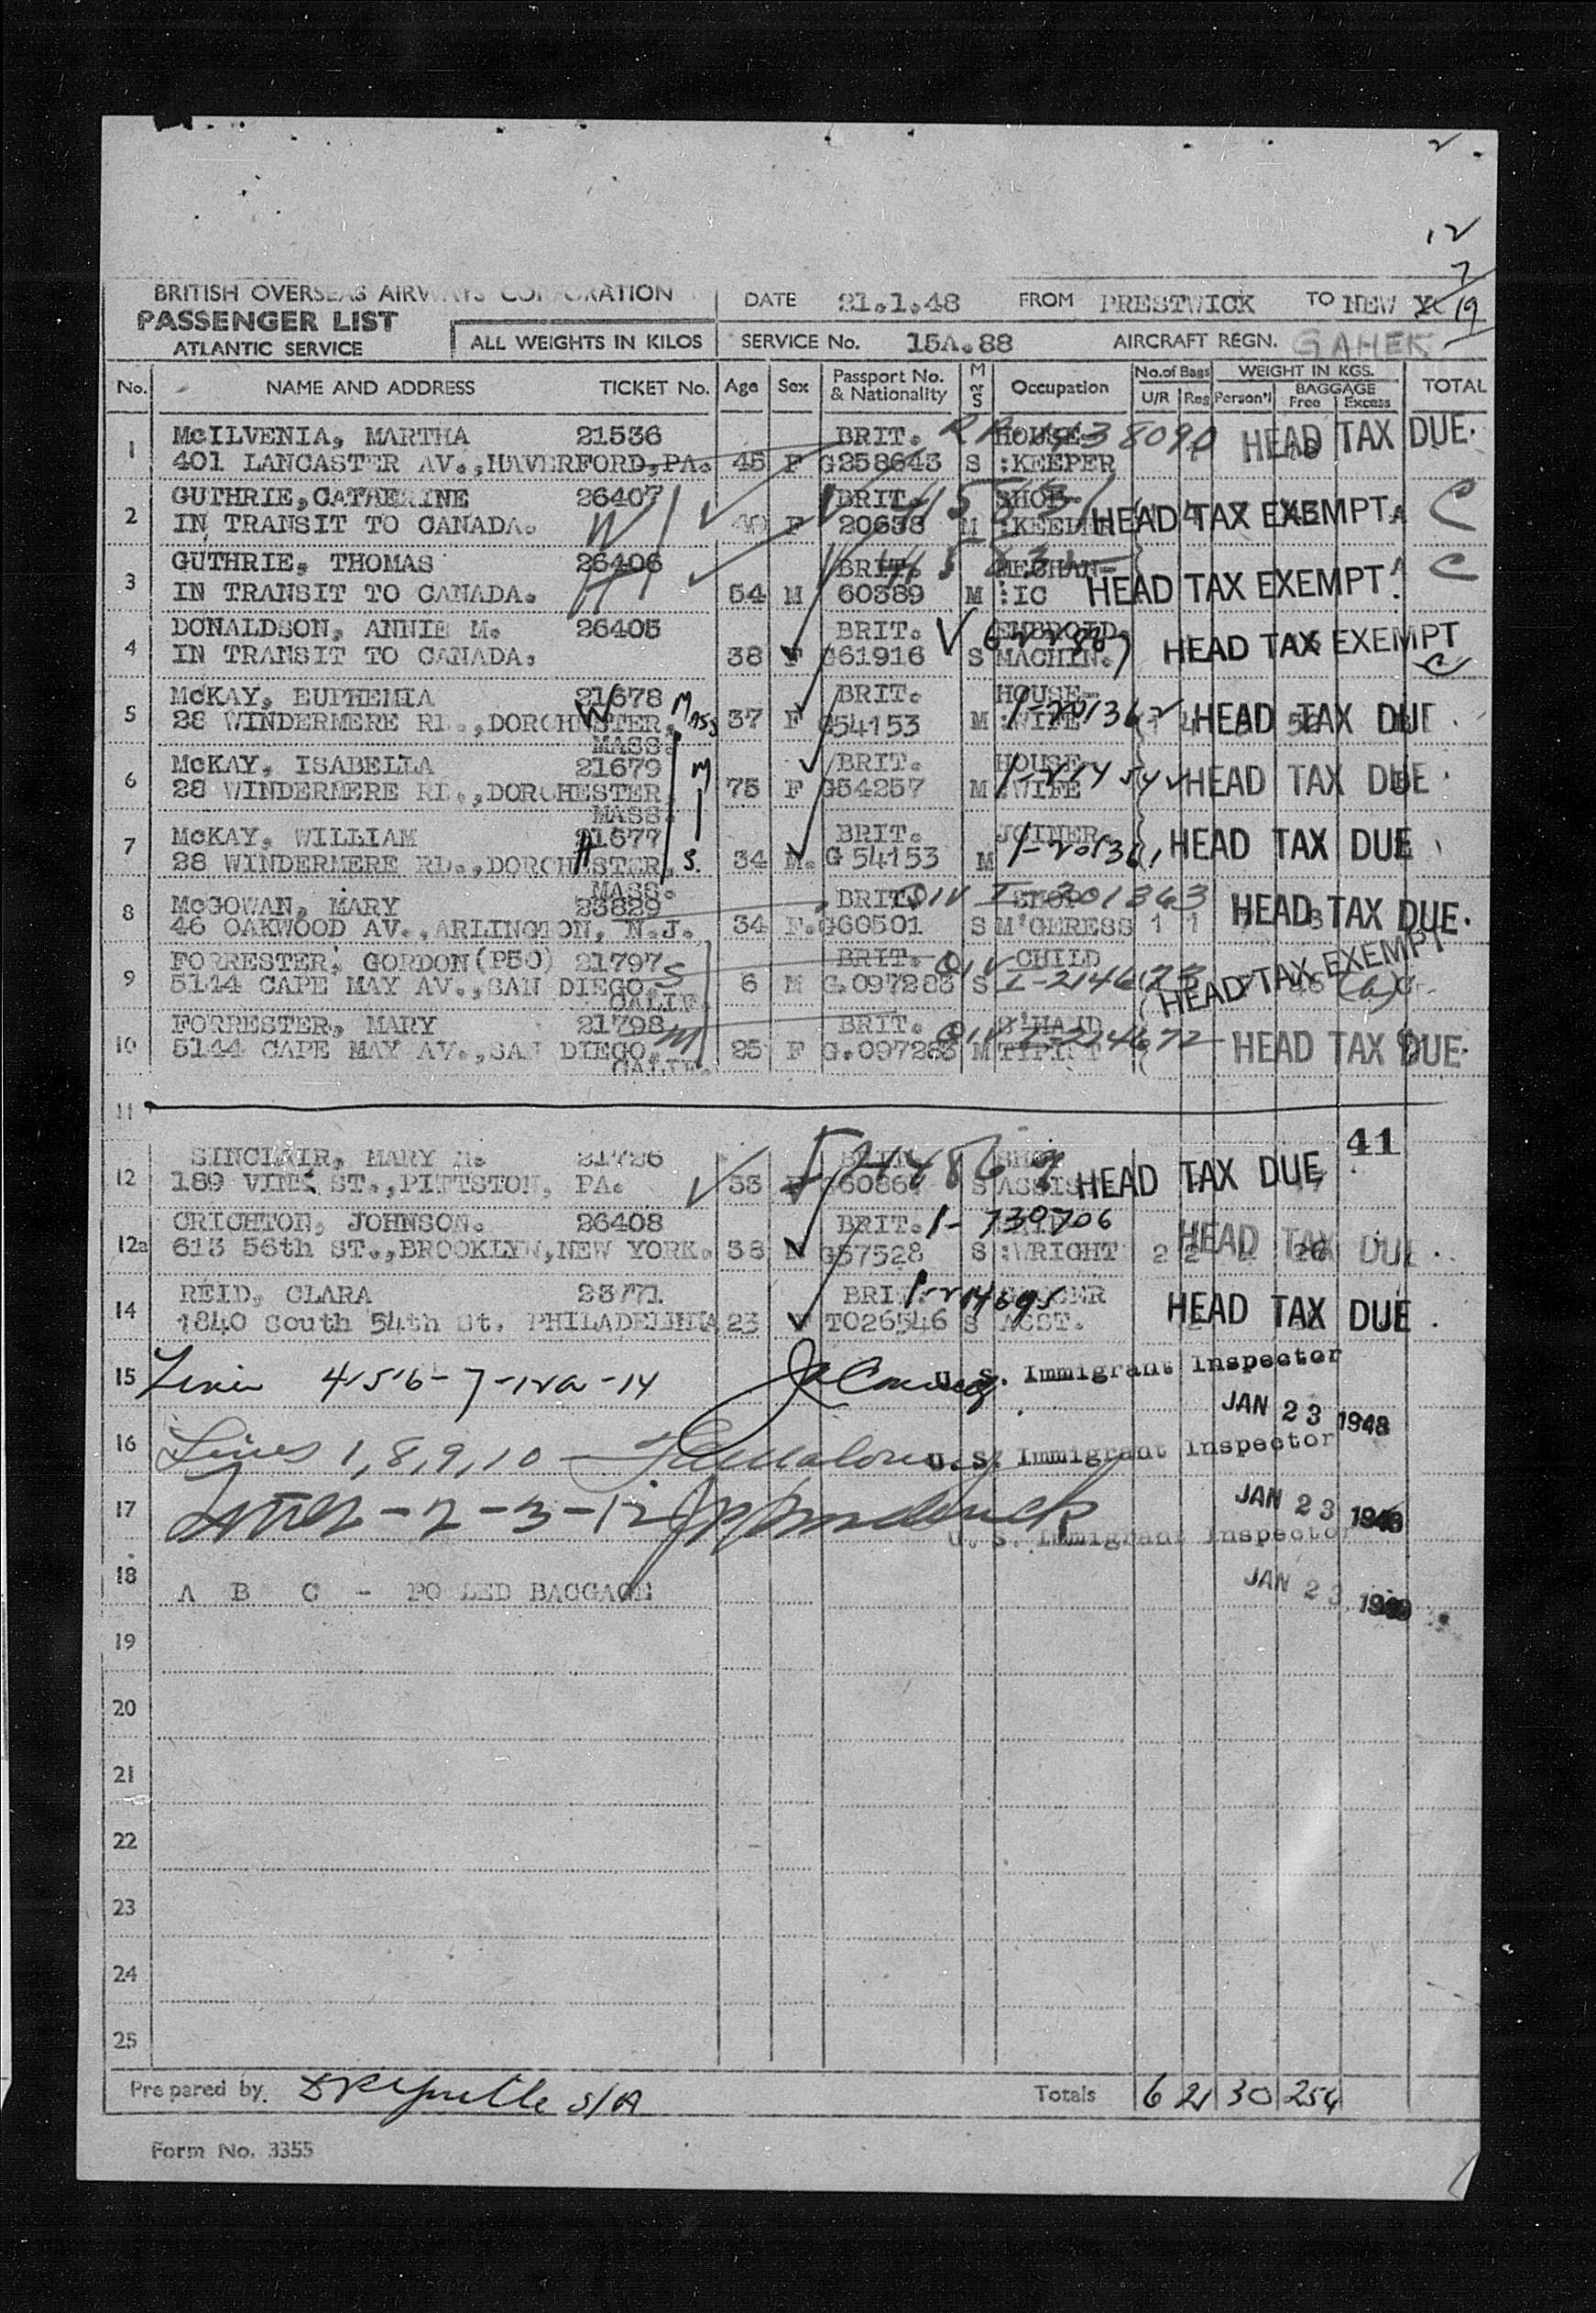 BRITISH OVERSEAS AIRWAYS CORPORATION
PASSENGER LIST
ATLANTIC SERVICE
ALL WEIGHTS IN KILOS
DATE 21.1.48 FROM PRESTWICK TO NEW
SERVICE No. 15A.88 AIRCRAFT REGN. GAHEK
No. NAME AND ADDRESS TICKET No. Age Sex Passport No. & Nationality M or S Occupation No. of Bags U/R Reg WEIGHT IN KGS. Person'l BAGGAGE Free Excess TOTAL
1 McILVENIA, MARTHA 21536 BRIT. HOUSE- HEAD TAX DUE.
401 LANCASTER AV.,HAVERFORD,PA. 45 F G258643 S :KEEPER
2 GUTHRIE,CATHERINE 26407 BRIT. SHOP-
IN TRANSIT TO CANADA. W 40 F 20638 M HEAD TAX EXEMPT. C
3 GUTHRIE, THOMAS 26406 BRIT. MECHAN-
IN TRANSIT TO CANADA. H 54 M 60389 M :IC HEAD TAX EXEMPT. C
4 DONALDSON, ANNIE M. 26405 BRIT. EMBROID.
IN TRANSIT TO CANADA. 38 F G61916 S MACHIN. HEAD TAX EXEMPT C
5 McKAY, EUPHEMIA 21678 BRIT. HOUSE-
28 WINDERMERE RD.,DORCHESTER, Mass 37 F G54153 M :WIFE HEAD TAX DUE.
MASS.
6 McKAY, ISABELLA 21679 BRIT. HOUSE-
28 WINDERMERE RD.,DORCHESTER, 75 F G54257 M :WIFE HEAD TAX DUE.
MASS.
7 McKAY, WILLIAM 21677 BRIT. JOINER
28 WINDERMERE RD.,DORCHESTER, 34 M. G 54153 M HEAD TAX DUE
MASS.
8 McGOWAN, MARY 23829 BRIT. QIV I-201363
46 OAKWOOD AV.,ARLINGTON, N.J. 34 F. G60501 S M'GERESS 1 1 HEAD TAX DUE.
9 FORRESTER, GORDON (P50) 21797 S BRIT. QIV CHILD HEAD TAX EXEMPT
5144 CAPE MAY AV.,SAN DIEGO. 6 M G.097283 S I-214673
CALIF.
10 FORRESTER, MARY 21798 M BRIT. QIV
5144 CAPE MAY AV.,SAN DIEGO. 25 F G.097283 M TYPIST HEAD TAX DUE.
CALIF.
11
41
12 SINCLAIR, MARY M. 21726 BRIT. SHOP
189 VINE ST.,PITTSTON, PA. 33 F S ASSIS HEAD TAX DUE
12a CRICHTON, JOHNSON. 26408 BRIT. 1-739706
613 56th ST.,BROOKLYN,NEW YORK. 38 M G57528 S :WRIGHT 2 2 26 HEAD TAX DUE.
14 REID, CLARA BRIT. 1-214695
1840 South 54th St. PHILADELPHIA 23 TO26546 S ASST. HEAD TAX DUE.
15 Lines 4-5-6-7-12a-14 U. S. Immigrant Inspector
JAN 23 1948
16 Lines 1,8,9,10 - U. S. Immigrant Inspector
JAN 23 1948
17 Lines - 2-3-12 U. S. Immigrant Inspector
JAN 23 1948
18 A B C - POOLED BAGGAGE
19
20
21
22
23
24
25
Prepared by. S/A Totals 6 21 30 254
Form No. 3355